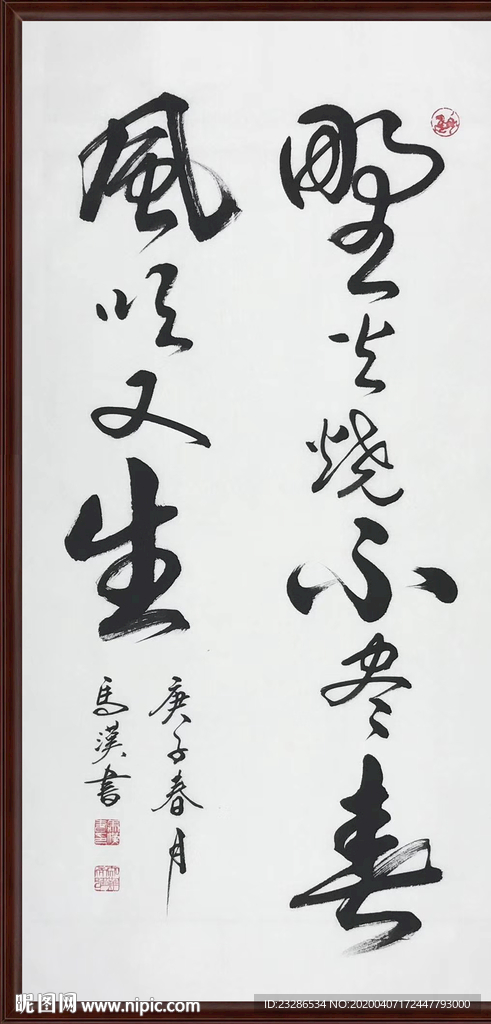 野火烧不尽春
風吹又生
庚子春月
馬漢書
昵图网 www.nipic.com
ID:23286534 NO:20200407172447793000